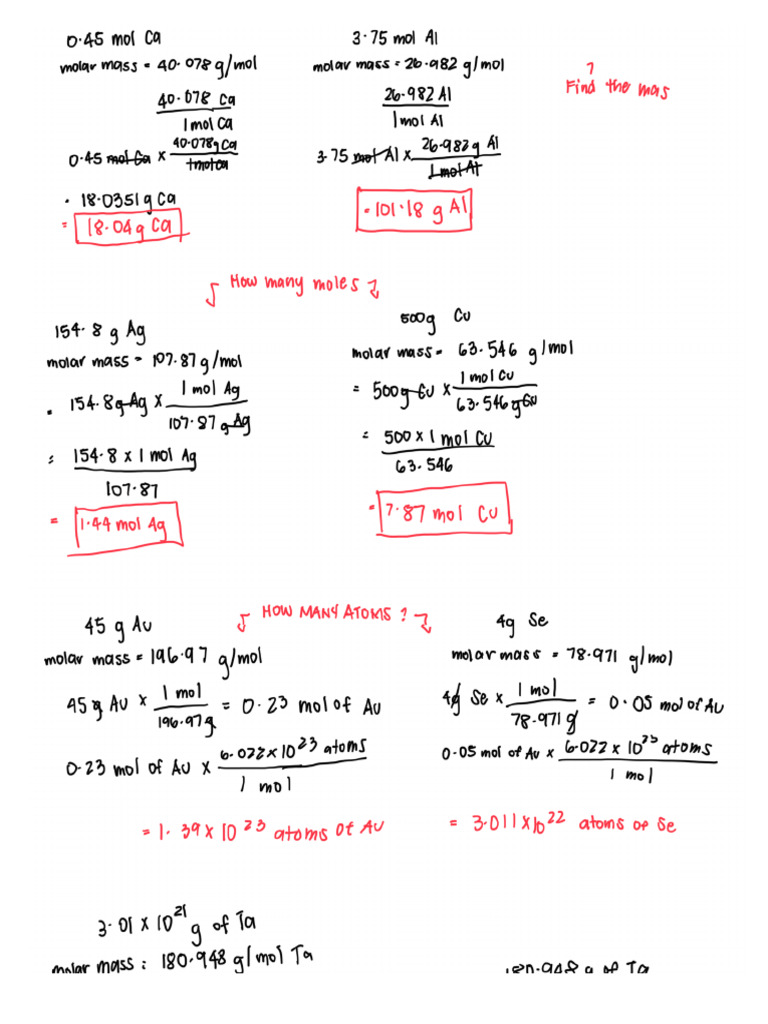 0.45 mol Ca
molar mass = 40.078 g/mol
40.078 Ca
1 mol Ca
0.45 mol Ca x 40.078g Ca
1 mol Ca
18.0351 g Ca
= 18.04 g Ca
3.75 mol Al
molar mass = 26.982 g/mol
26.982 Al
1 mol Al
3.75 mol Al x 26.982 g Al
1 mol Al
= 101.18 g Al
?
Find the mas
How many moles
154.8 g Ag
molar mass = 107.87 g/mol
154.8g Ag x 1 mol Ag
107.87 g Ag
= 154.8 x 1 mol Ag
107.87
= 1.44 mol Ag
500g Cu
molar mass = 63.546 g/mol
= 500g Cu x 1 mol Cu
63.546 g Cu
= 500 x 1 mol Cu
63.546
= 7.87 mol Cu
HOW MANY ATOMS ?
45 g Au
molar mass = 196.97 g/mol
45 g Au x 1 mol = 0.23 mol of Au
196.97g
0.23 mol of Au x 6.022 x 10^23 atoms
1 mol
= 1.39 x 10^23 atoms of Au
4g Se
molar mass = 78.971 g/mol
4g Se x 1 mol = 0.05 mol of Au
78.971 g
0.05 mol of Au x 6.022 x 10^23 atoms
1 mol
= 3.011 x 10^22 atoms of Se
3.01 x 10^21 g of Ta
molar mass: 180.948 g/mol Ta
180.948 g of Ta